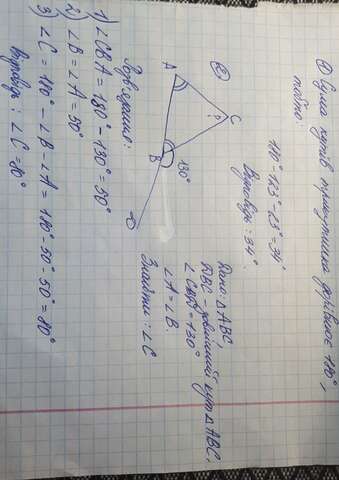 ① Сума кутів трикутника дорівнює 180°,
тобто:
180° - 123° - 23° = 34°
Відповідь: 34°.
②
A
C
?
B
130°
D
Дано: △ABC,
DBC - зовнішній кут △ABC,
∠CBD = 130°
∠A = ∠B.
Знайти: ∠C
Розв'язання:
1) ∠CBA = 180° - 130° = 50°
2) ∠B = ∠A = 50°
3) ∠C = 180° - ∠B - ∠A = 180° - 50° - 50° = 80°
Відповідь: ∠C = 80°